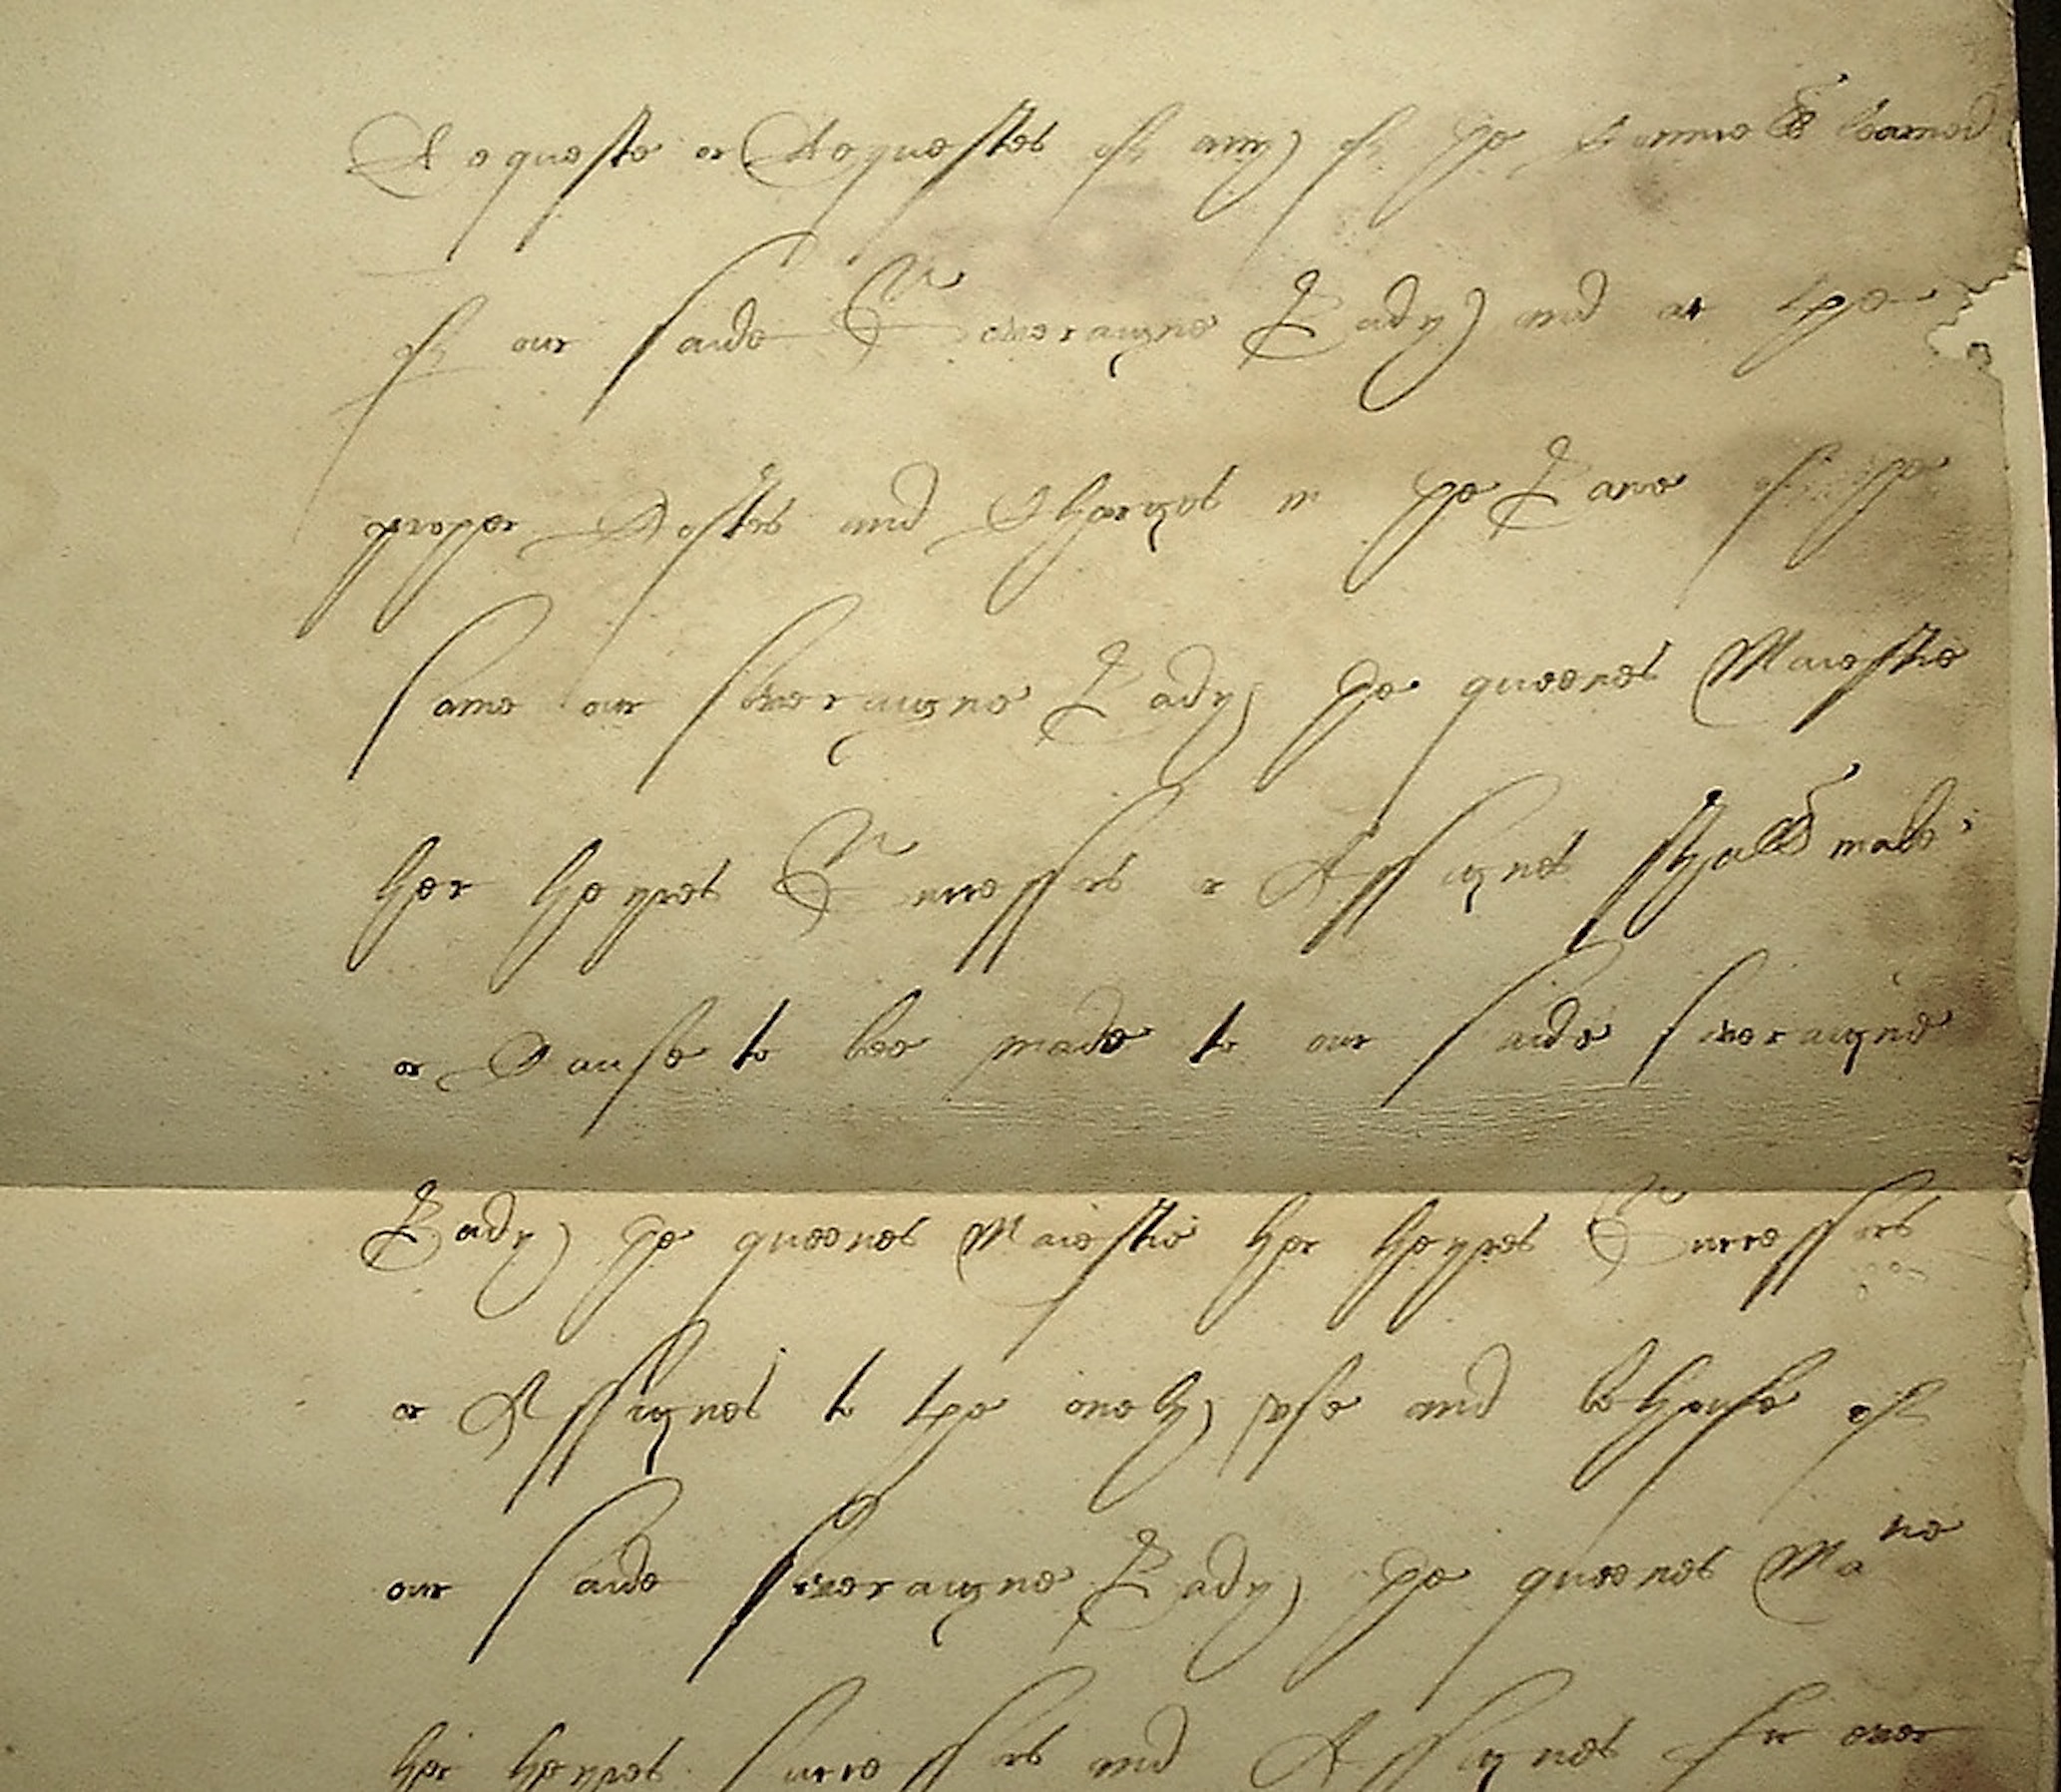 Requeste or Requestes of any of the Counsell learned
of our saide Soveraigne Lady and at the
propper Costes and Charges in the Lawe of the
same our Soveraigne Lady the queenes Maiestie
her heyres Successors or Assignes shall make
or Cause to bee made to our saide Soveraigne
Lady the queenes Maiestie her heyres Successors
or Assignes to the onely vse and behoufe of
our saide Soveraigne Lady the queenes Ma^tie
her heyres Successors and Assignes for ever